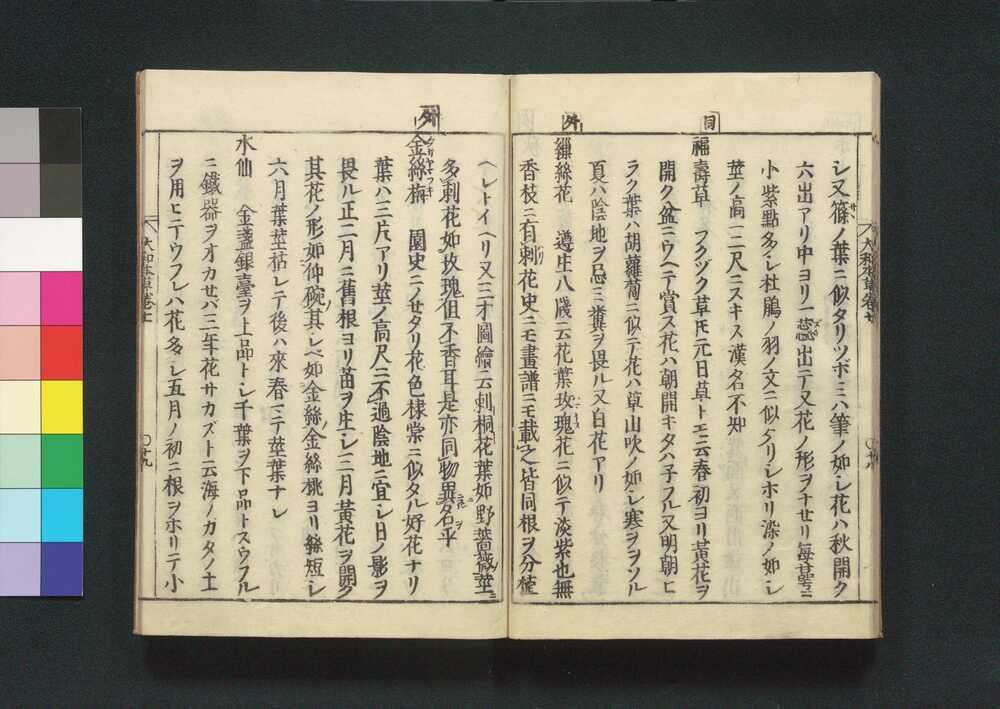 同
外
シ又篠ノ葉ニ似タリツボミハ筆ノ如シ花ハ秋開ク
六出アリ中ヨリ一蕊出テ又花ノ形ヲナセリ毎萼ニ
小紫點多シ杜鵑ノ羽ノ文ニ似タリシホリ染ノ如シ
莖ノ高一二尺ニスキス漢名不知
福壽草 フクヅク草トモ元日草トモ云春初ヨリ黄花ヲ
開ク盆ニウヘテ賞ス花ハ朝開キタハ子フル又明朝ヒ
ラク葉ハ胡蘿蔔ニ似テ花ハ草山吹ノ如シ寒ヲヲソル
夏ハ陰地ヲ忌ミ糞ヲ畏ル又白花アリ
纙絲花 遵生八牋云花葉玫瑰花ニ似テ淡紫也無
香枝ニ有刺花史ニモ畫譜ニモ載之皆同根ヲ分植
大和本草卷七
外
ヘシトイヘリ又三才圖繪云刺桐花葉如野薔薇莖ニ
多刺花如玫瑰但不香耳是亦同物異名乎
金絲梅 園史ニノセタリ花色棣棠ニ似タル好花ナリ
葉ハ三片アリ莖ノ高尺ニ不過陰地ニ宜シ日ノ影ヲ
畏ル正二月ニ舊根ヨリ苗ヲ生シ三月黄花ヲ開ク
其花ノ形如仰碗其シベ如金絲金絲桃ヨリ絲短シ
六月葉莖枯レテ後ハ來春ニテ莖葉ナシ
水仙 金盞銀臺ヲ上品トシ千葉ヲ下品トスウフル
ニ鐵器ヲオカセバ三年花サカズト云海ノカタノ土
ヲ用ヒテウフレハ花多シ五月ノ初ニ根ヲホリテ小
大和本草卷七
〇廿九